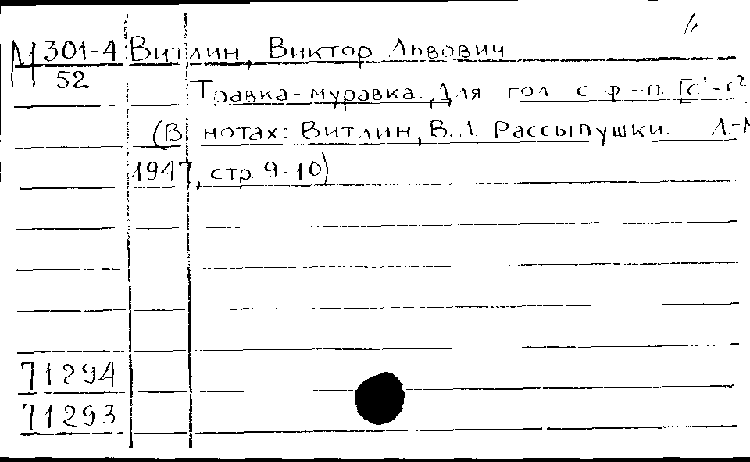 М 301-4 Витлин, Виктор Львович
52
Травка-муравка. Для гол. с ф-п. [c¹-c²
(В нотах: Витлин, В.Л. Рассыпушки. Л-М
1947, стр. 9-10)
71294
71293